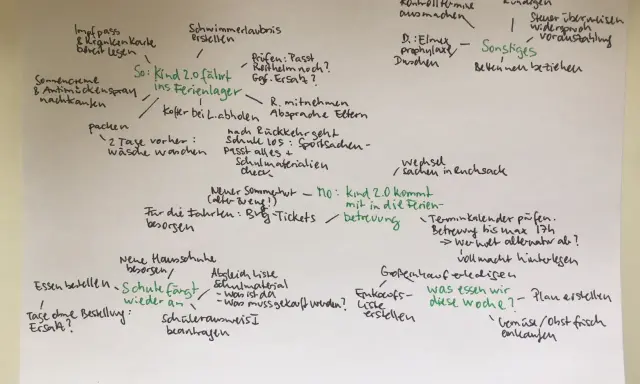 Kontrolltermine
ausmachen
kündigen
Steuer überweisen
widerspruch
Vorauszahlung
D.: Elmex
prophylaxe
Duschen
Sonstiges
Betten neu beziehen
Impfpass
& Krankenkarte
bereit legen
Schwimmerlaubnis
erstellen
So: Kind 2.0 fährt
ins Ferienlager
Prüfen: Passt
Reithelm noch?
Ggf. Ersatz?
Sonnencreme
& Antimückenspray
nachkaufen
Koffer bei L. abholen
R. mitnehmen
Absprache Eltern
packen
2 Tage vorher:
wäsche waschen
nach Rückkehr geht
Schule los: Sportsachen -
passt alles +
Schulmaterialien
check
wechsel
sachen in Rucksack
Neuer Sommerhut
(alter zu eng!)
Mo: Kind 2.0 kommt
mit in die Ferien-
betreuung
Für die Fahrten: BVG-Tickets
besorgen
Terminkalender prüfen.
Betreuung bis max 17h
→ Wer holt alternativ ab?
Vollmacht hinterlegen
Neue Hausschuhe
besorgen
Essen bestellen
Schule fängt
wieder an
Abgleich Liste
Schulmaterial
- was ist da
- was muss gekauft werden?
Tage ohne Bestellung:
Ersatz?
Schülerausweis I
beantragen
Großeinkauf erledigen
Einkaufs-
Liste
erstellen
was essen wir
diese Woche?
Plan erstellen
Gemüse/Obst frisch
einkaufen